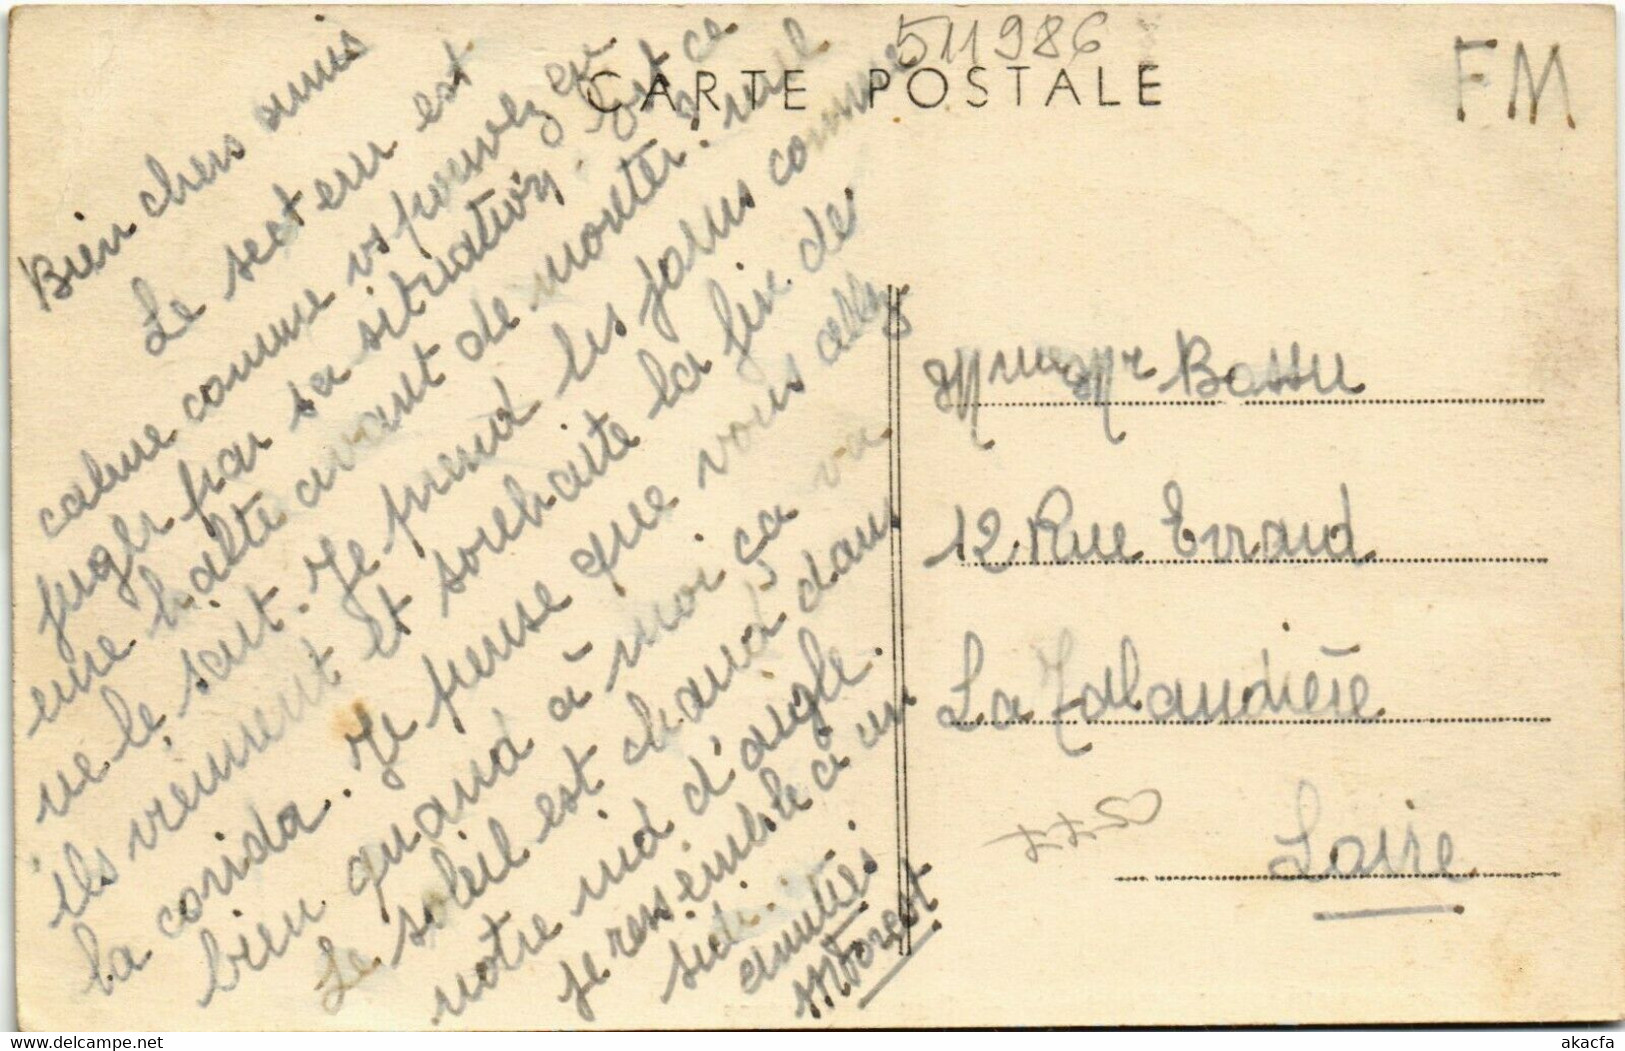 511986
CARTE POSTALE
FM
Bien chers amis
Le secteur est
calme comme vs pouvez en
juger par sa situation. Est ce
une halte avant de monter? nul
ne le sait. Je prend les jours comme
ils viennent et souhaite la fin de
la corrida. Je pense que vous allez
bien quand à moi ça va
Le soleil est chaud dans
notre nid d'aigle.
je ressemble à un
sidi.
amitiés
Mme Mr Bossu
12 Rue Erraud
La Talaudière
Loire
akacfa